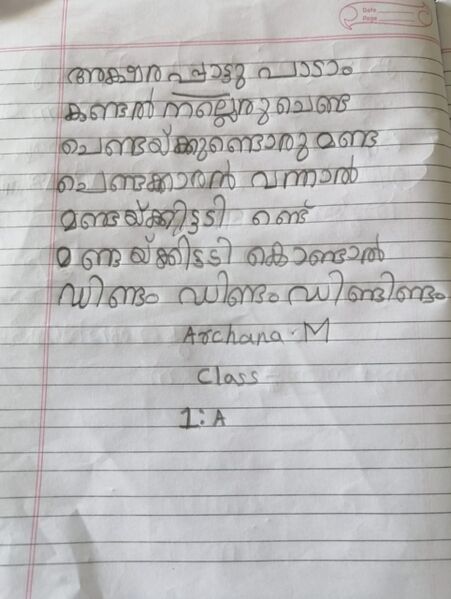 Date
Page
അക്ഷര പ്പാട്ടു പാടാം
കണ്ടാൽ നല്ലൊരു ചെണ്ട
ചെണ്ടയ്ക്കുണ്ടൊരു മണ്ട
ചെണ്ടക്കാരൻ വന്നാൽ
മണ്ടയ്ക്കിട്ടടി രണ്ട്
മണ്ടയ്ക്കിട്ടടി കൊണ്ടാൽ
ഡിണ്ടം ഡിണ്ടം ഡിണ്ടിണ്ടം
Archana. M
Class
1: A